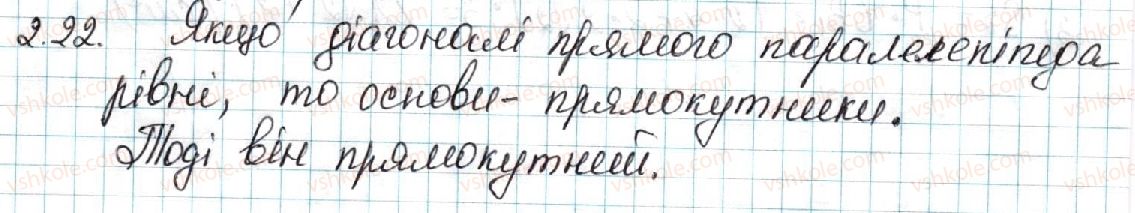 2.22. Якщо діагоналі прямого паралелепіпеда
рівні, то основи - прямокутники.
Тоді він прямокутний.